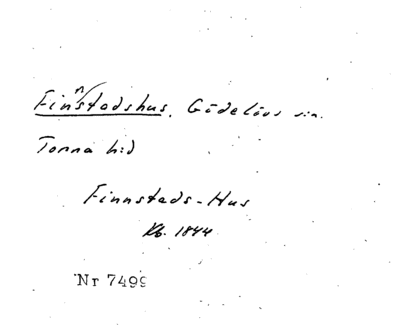 Finnstadshus. Gödelövs sn.
Torna hd
Finnstads-Hus
Kb. 1844
Nr 7499